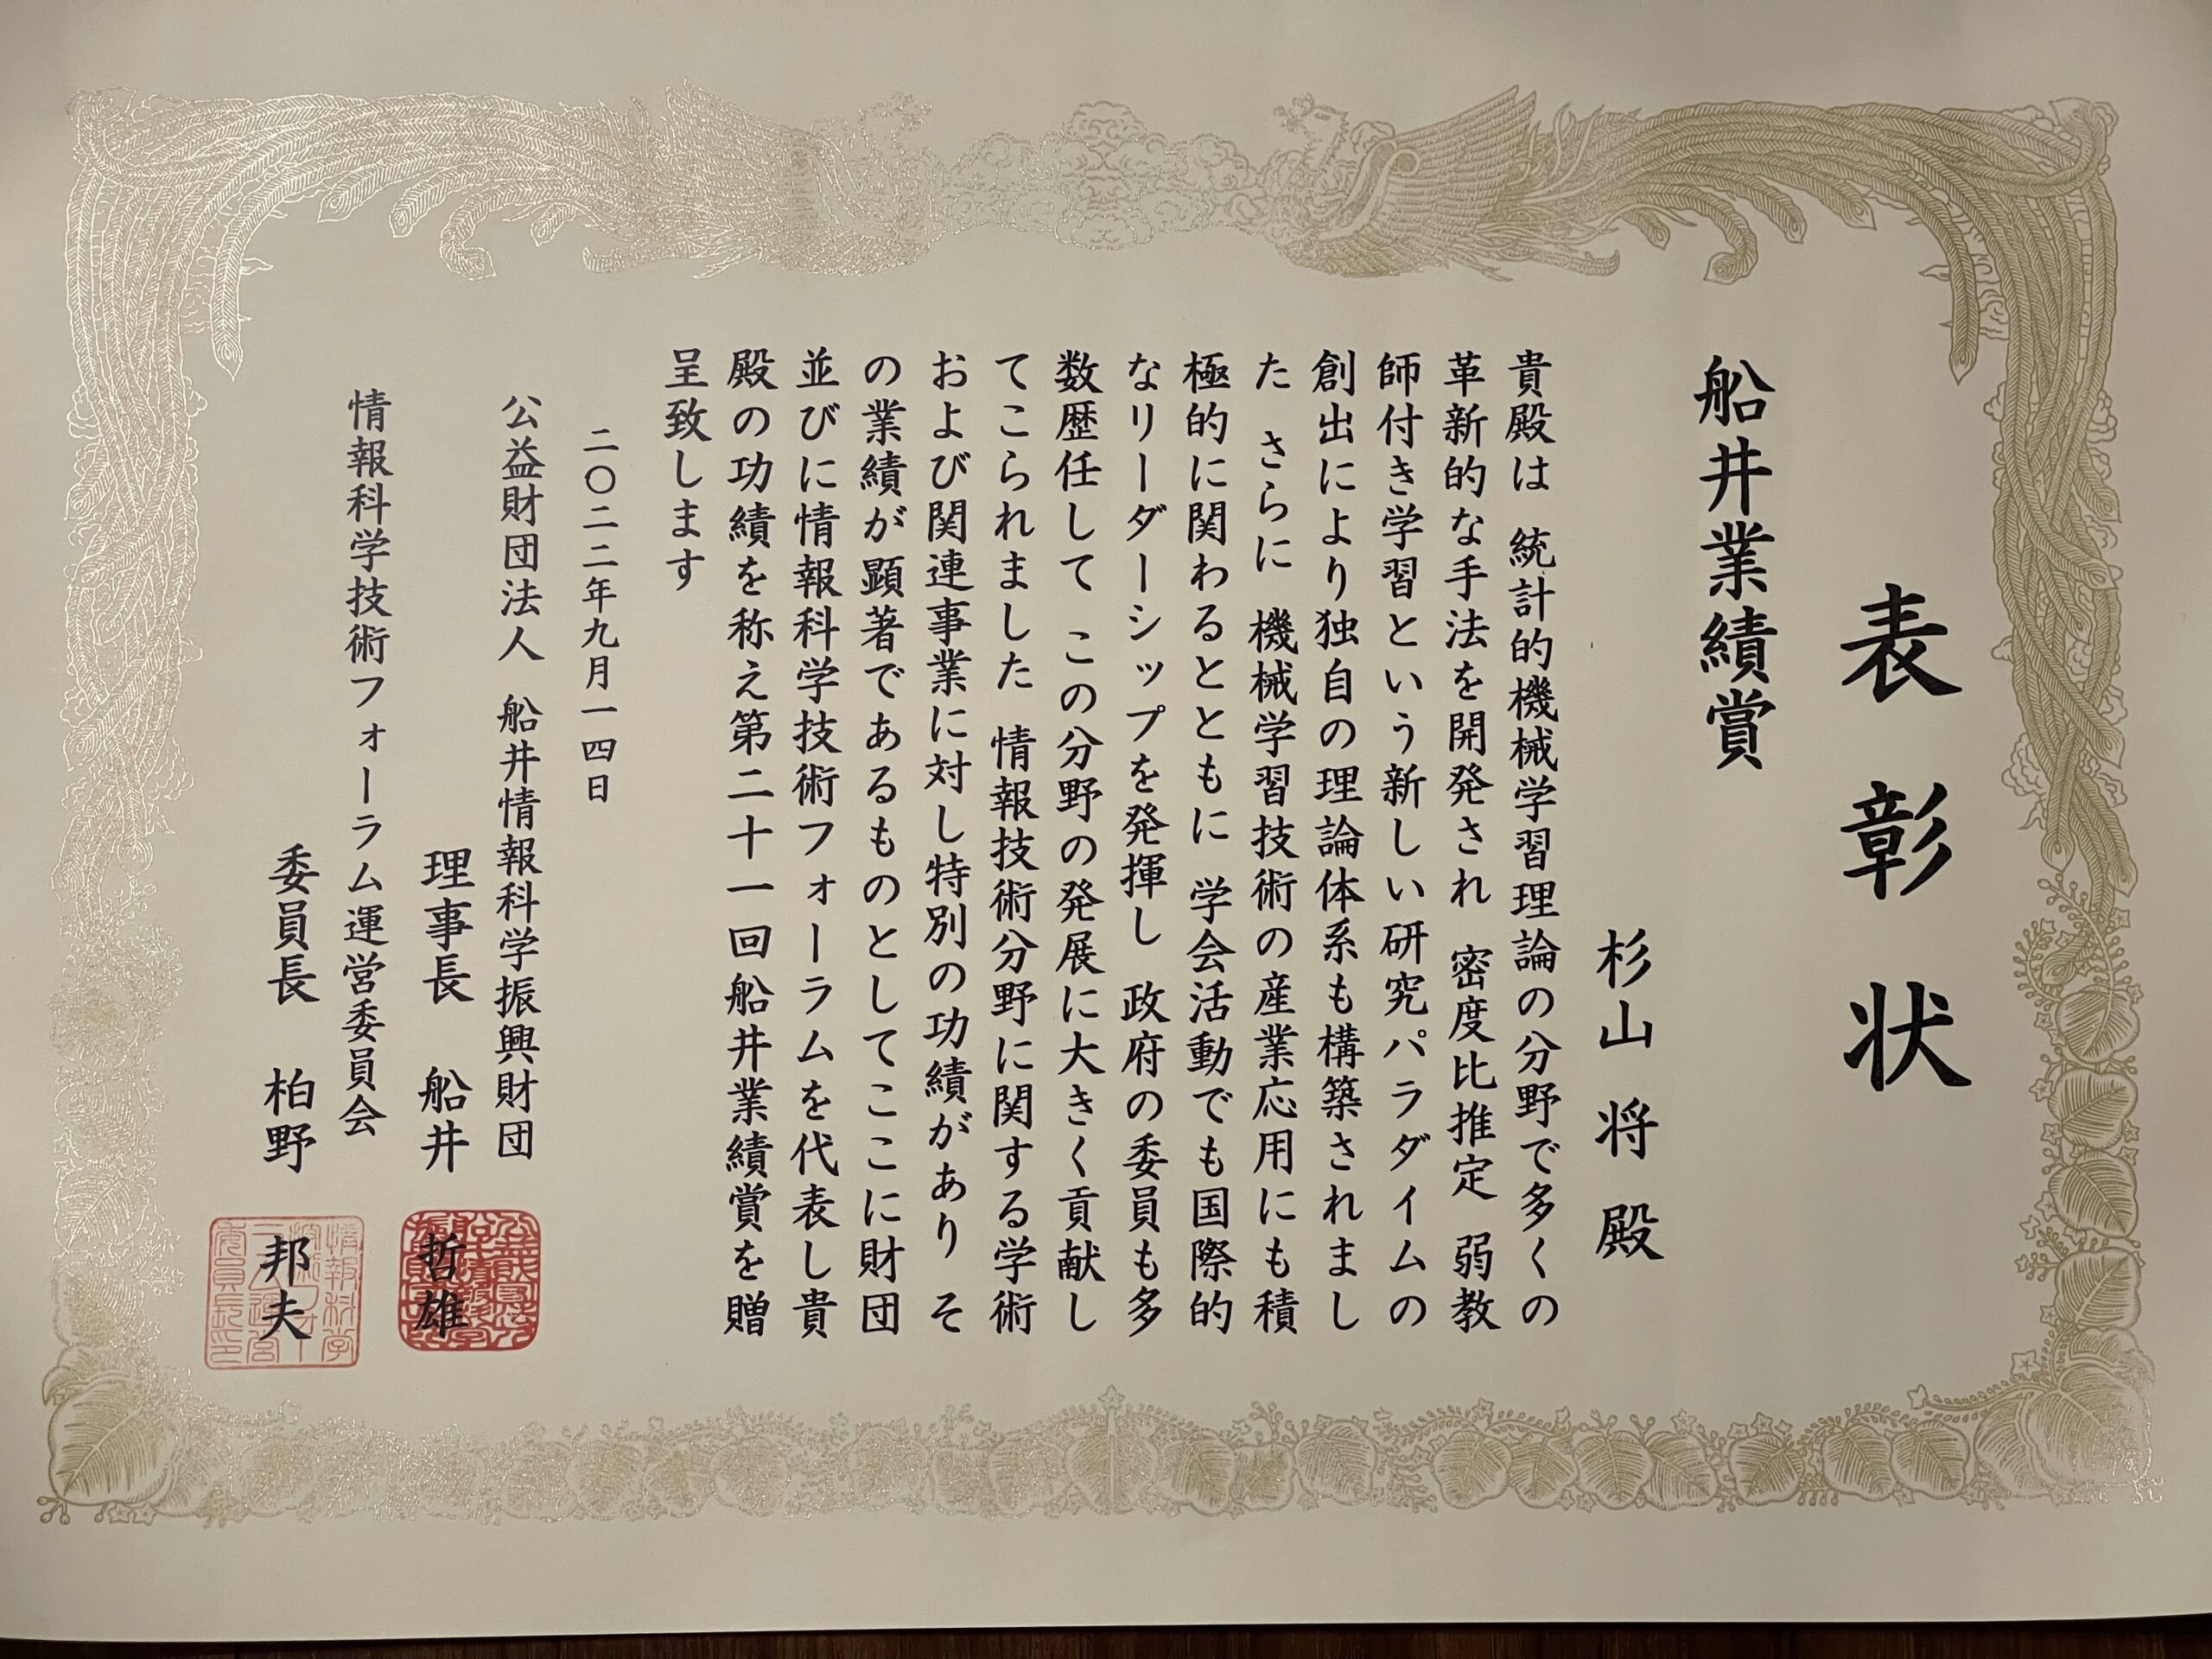 表彰状
船井業績賞
杉山 将 殿
貴殿は 統計的機械学習理論の分野で多くの
革新的な手法を開発され 密度比推定 弱教
師付き学習という新しい研究パラダイムの
創出により独自の理論体系も構築されまし
た さらに 機械学習技術の産業応用にも積
極的に関わるとともに 学会活動でも国際的
なリーダーシップを発揮し 政府の委員も多
数歴任して この分野の発展に大きく貢献し
てこられました 情報技術分野に関する学術
および関連事業に対し特別の功績があり そ
の業績が顕著であるものとしてここに財団
並びに情報科学技術フォーラムを代表し貴
殿の功績を称え第二十一回船井業績賞を贈
呈致します
二〇二二年九月一四日
公益財団法人 船井情報科学振興財団
理事長 船井 哲雄
情報科学技術フォーラム運営委員会
委員長 柏野 邦夫